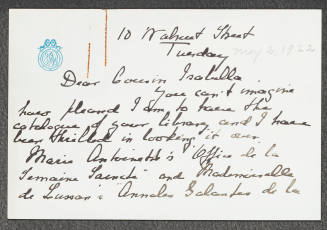 10 Walnut Street
Tuesday
May 2, 1922
Dear Cousin Isabella.
You can't imagine
how pleased I am to have the
catalogue of your library and I have
been thrilled in looking it over
Marie Antoinette's "Office de la
Semaine Sainte" and Mademoiselle
de Lussan's Annales Galantes de la